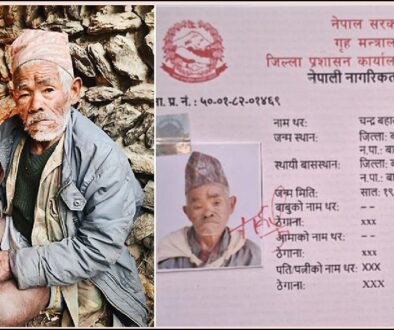 नेपाल सरक
गृह मन्त्राल
जिल्ला प्रशासन कार्याल
नेपाली नागरिकत
ा. प्र. नं. : ५०-०१-८२-०१४६९
नाम थर: चन्द्र बहाद
जन्म स्थान: जिल्ला:
न.पा.: बा
स्थायी बासस्थान: जिल्ला:
न.पा.: बा
जन्म मिति: साल: १९
बाबुको नाम थर: --
ठेगाना: xxx
आमाको नाम थर: --
ठेगाना: xxx
पति/पत्नीको नाम थर: XXX
ठेगाना: XXX